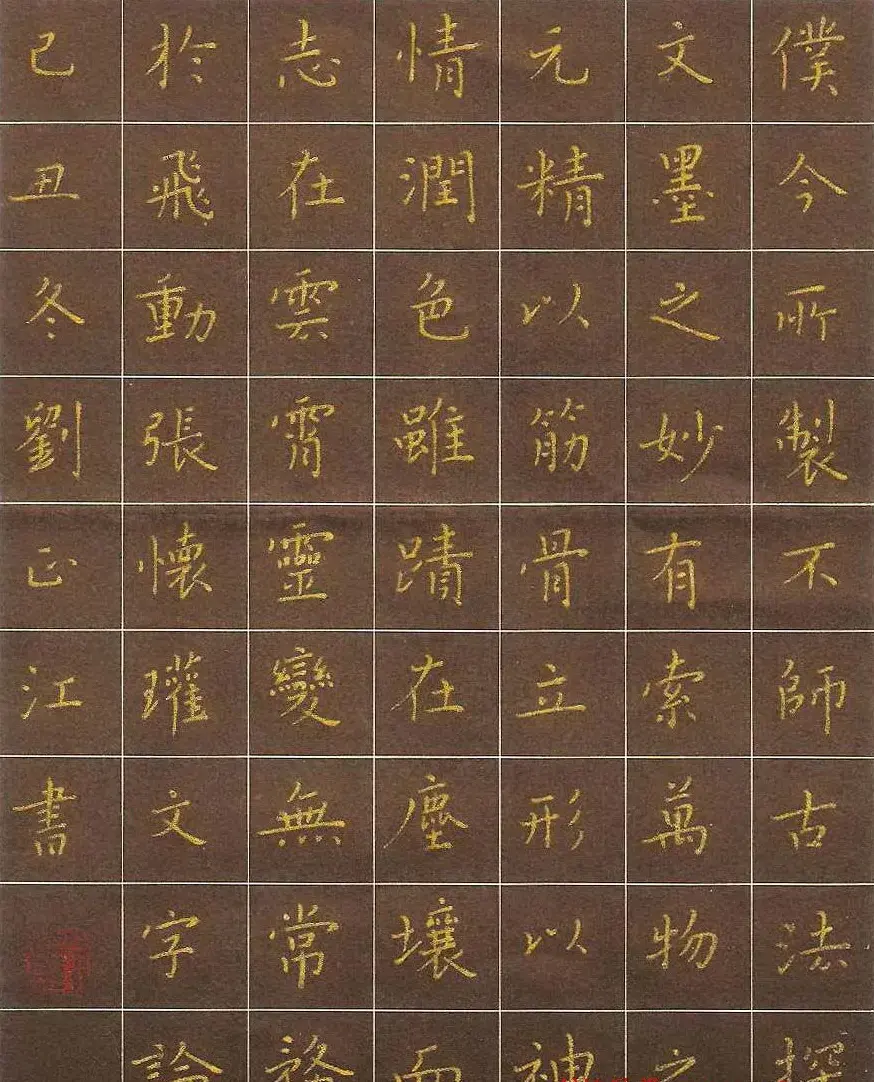 僕今所製不師古法探
文墨之妙有索萬物之
元精以筋骨立形以神
情潤色雖蹟在塵壤而
志在雲霄靈變無常務
於飛動張懷瓘文字論
己丑冬劉正江書